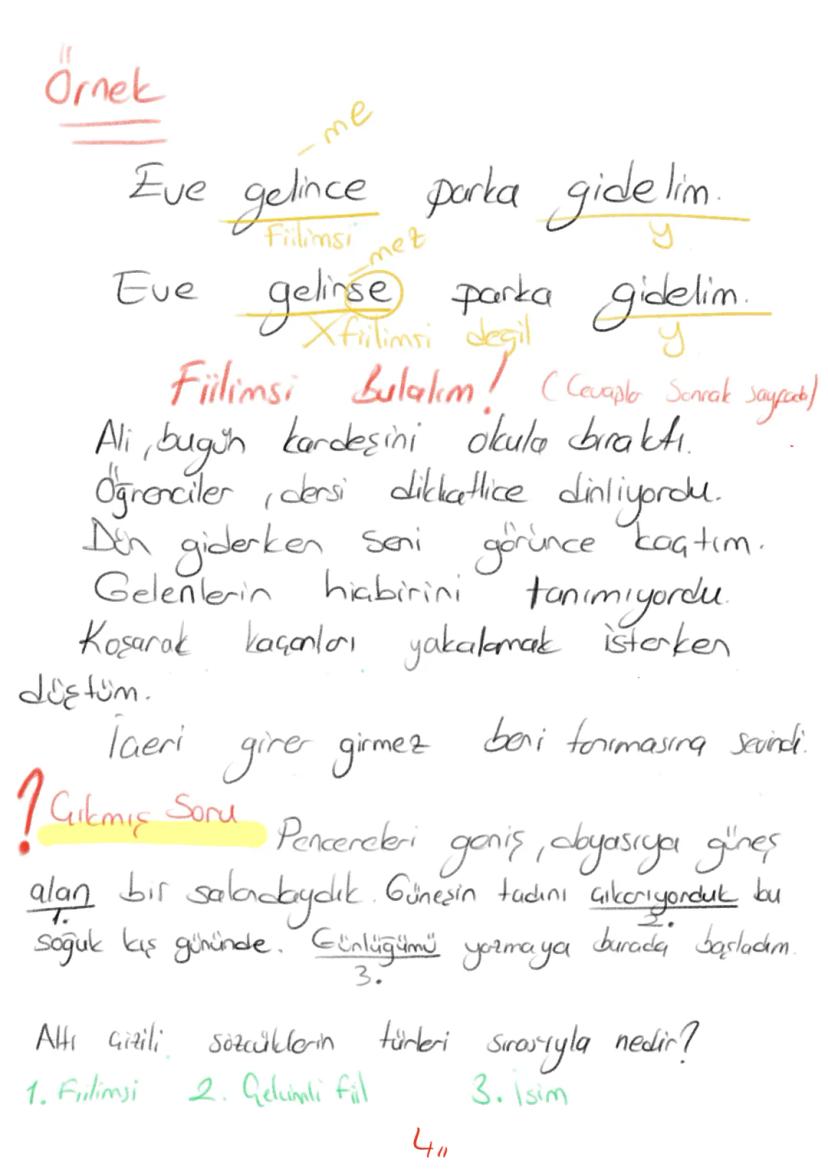 Örnek
-me
Eve gelince parka gidelim.
Fiilimsi y
-mez
Eve gelirse parka gidelim.
X fiilimsi değil y
Fiilimsi Bulalım! (Cevaplar Sonrak sayfada)
Ali, bugün kardeşini okula bıraktı.
Öğrenciler, dersi dikkatlice dinliyordu.
Dün giderken seni görünce kaçtım.
Gelenlerin hiçbirini tanımıyordu.
Koşarak kaçanları yakalamak isterken
düştüm.
İçeri girer girmez beni tanımasına sevindi.
? Çıkmış Soru
Pencereleri geniş, doyasıya güneş
alan bir salondaydık. Güneşin tadını çıkarıyorduk bu
1. 2.
soğuk kış gününde. Günlüğümü yazmaya burada başladım.
3.
Altı çizili sözcüklerin türleri sırasıyla nedir?
1. Fiilimsi 2. Çekimli fiil 3. İsim
4